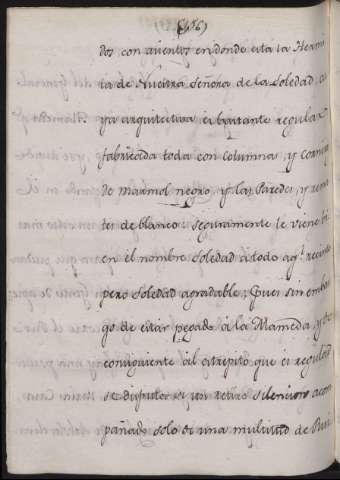 (456)
dos conventos en donde esta la Hermi
ta de Nuestra Señora de la Soledad, cu
ya arquitectura es bastante regular
fabricada toda con columnas, y cornisa
de marmol negro, y las Paredes, y rema
tes de blanco: seguramente le viene bi
en el nombre Soledad â todo aql. recinto
pero Soledad agradable; Pues sin embar
go de estar pegado â la Alameda, y de
consiguiente âl estrepito que es regular
se disfruta es un retiro silencioso acom
pañado solo de una multitud de Rui